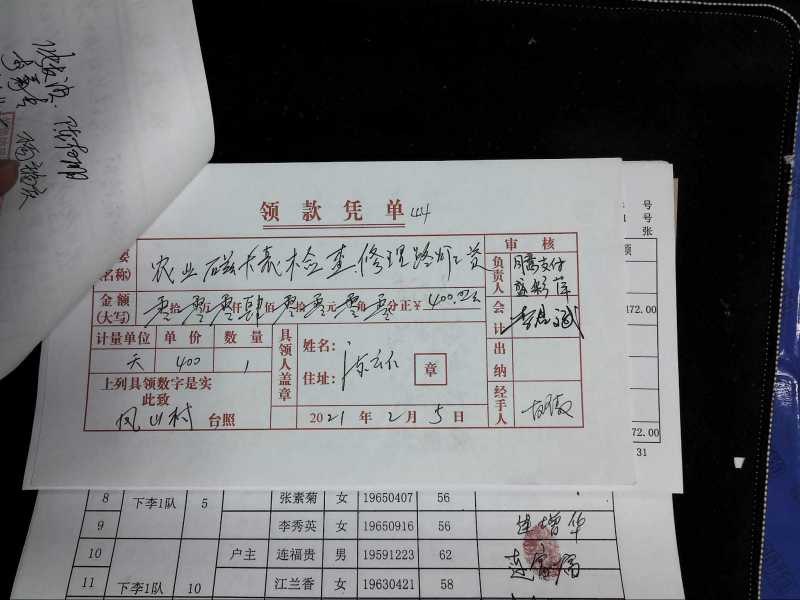 领款凭单
审核
名称)
农业磁卡表检查.修理路灯工资
负责人
同意支付
金额
(大写)
零拾零万零仟肆佰零拾零元零角零分正¥400.00元
会计
计量单位 单价 数量
天 400 1
具领人盖章
姓名:
住址:
章
出纳
上列具领数字是实
此致
凤山村 台照
2021年2月5日
经手人
号
号
张
额
172.00
72.00
31
8 下李1队 5 张素菊 女 19650407 56
9 李秀英 女 19650916 56 连增华
10 户主 连福贵 男 19591223 62
11 下李1队 10 江兰香 女 19630421 58